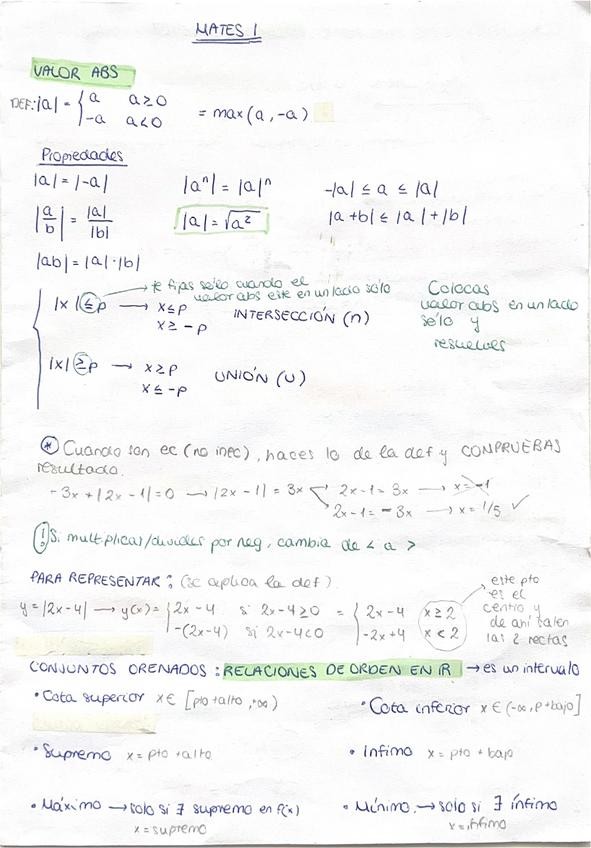 MATES 1
VALOR ABS
DEF: |a| = { a a ≥ 0
-a a < 0
= max (a, -a)
Propiedades
|a| = |-a| |aⁿ| = |a|ⁿ -|a| ≤ a ≤ |a|
|a/b| = |a|/|b| |a| = √a² |a+b| ≤ |a| + |b|
|ab| = |a|·|b|
te fijas sólo cuando el
valor abs esté en un lado sólo
|x| ≤ p → x ≤ p
x ≥ -p
INTERSECCIÓN (∩)
Colocas
valor abs en un lado
sólo y
resuelves
|x| ≥ p → x ≥ p
x ≤ -p
UNIÓN (U)
* Cuando son ec (no inec), haces lo de la def y CONPRUEBAS
resultado.
-3x + |2x - 1| = 0 → |2x - 1| = 3x 2x - 1 = 3x → x = -1
2x - 1 = -3x → x = 1/5 ✓
! Si multiplicas/divides por neg, cambia de < a >
PARA REPRESENTAR: (se aplica la def).
y = |2x-4| → y(x) = { 2x-4 si 2x-4 ≥ 0 = { 2x-4 x ≥ 2
-(2x-4) si 2x-4 < 0 -2x+4 x < 2
este pto
es el
centro y
de ahí salen
las 2 rectas
CONJUNTOS ORENADOS: RELACIONES DE ORDEN EN ℝ → es un intervalo
• Cota superior x ∈ [pto + alto, +∞)
• Cota inferior x ∈ (-∞, p + bajo]
• Supremo x = pto + alto
• Ínfimo x = pto + bajo
• Máximo → solo si ∃ supremo en f(x)
x = supremo
• Mínimo. → solo si ∃ ínfimo
x = ínfimo